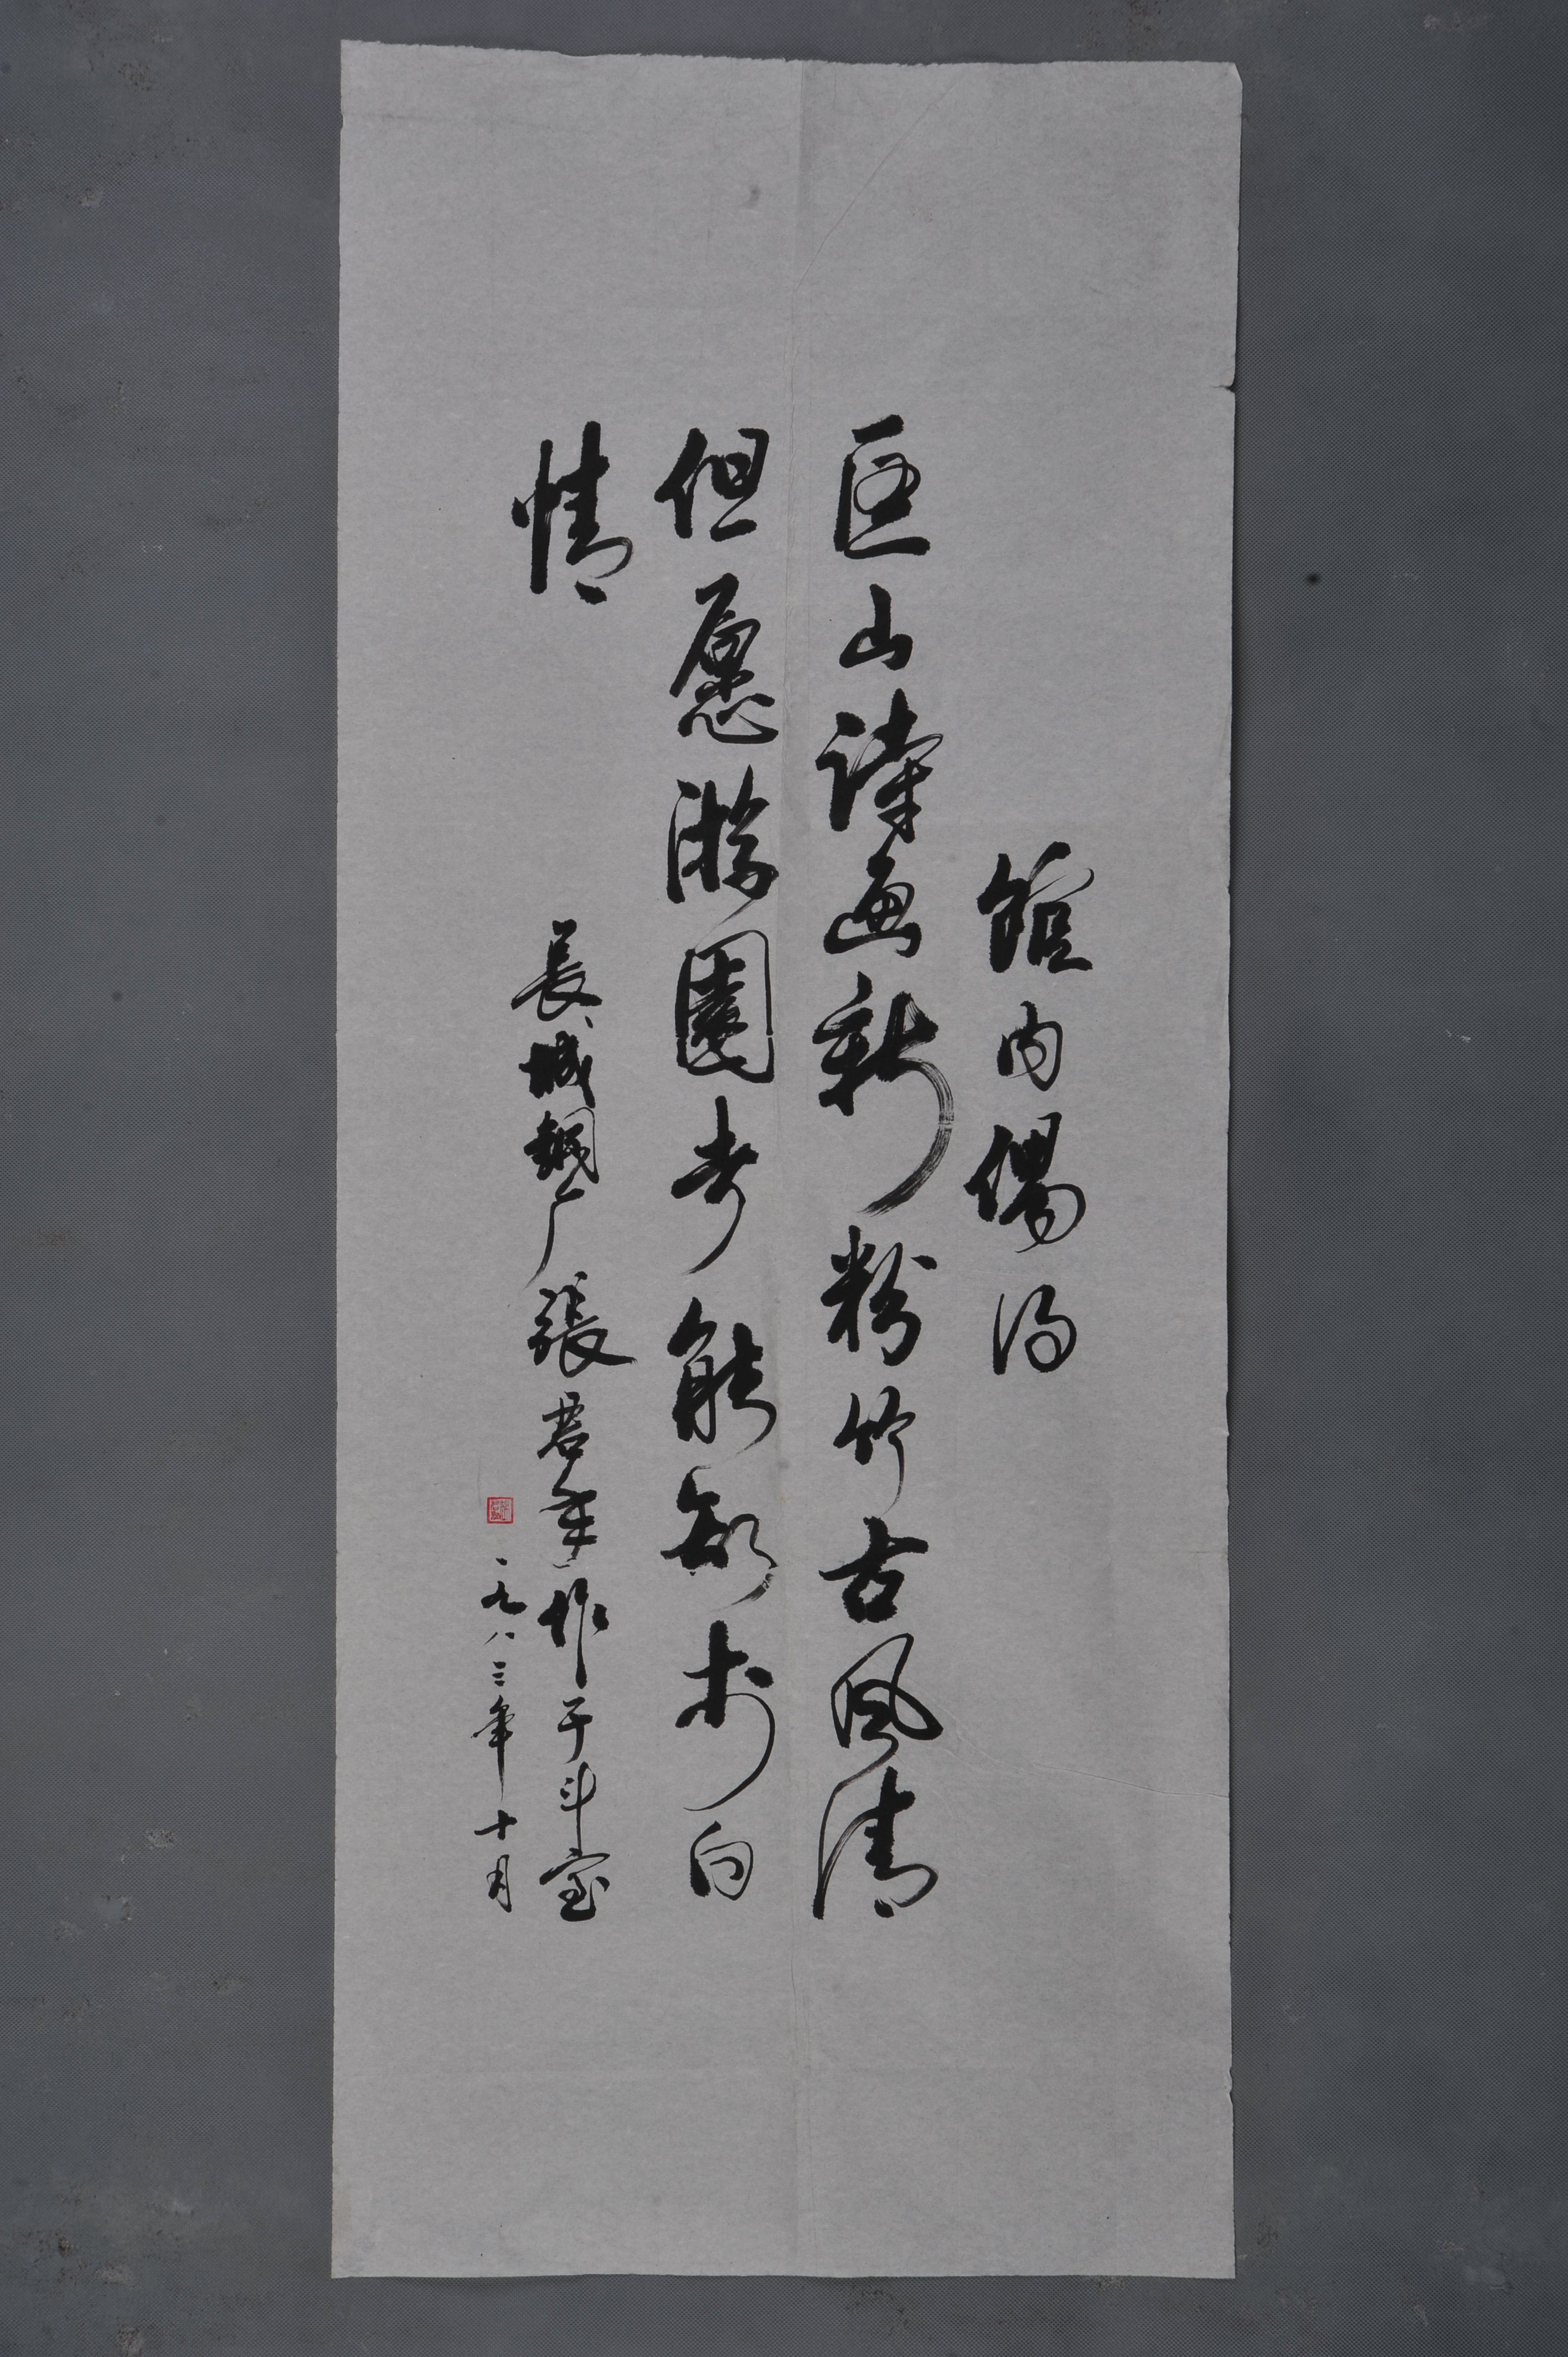 館内偶得
匡山诗画新粉竹古风清
但愿游園者能知李白
情
長城鋼厂張君作于斗室
一九八三年十月